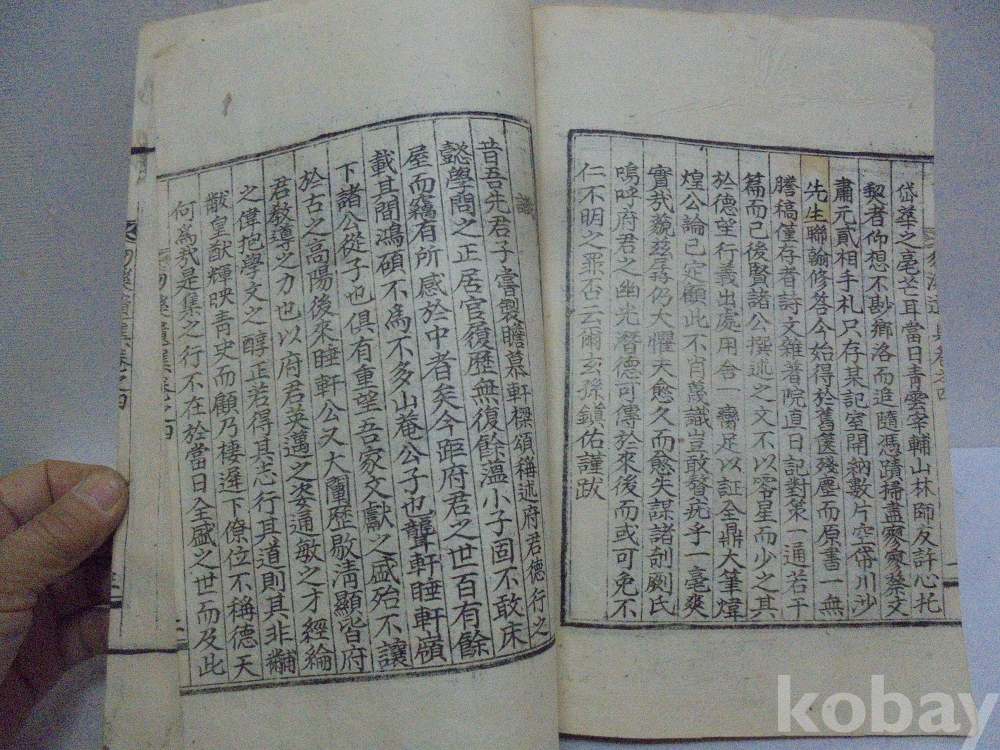 岱華之毫芒耳當日青雲宰輔山林師友許心托
契者仰想不尠鄕洛而追隨憑蹟掃盡寥寥蔡文
肅元貳相手札只存某記室開納數片空帋川沙
先生聯翰修答今始得於舊篋殘塵而原書一無
謄稿僅存者詩文雜著院直日記對策一通若干
篇而已後賢諸公撰述之文不以零星而少之其
於德望行義出處用舍一臠足以証全鼎大筆煒
煌公論已定顧此不肖蔑識豈敢贅疣乎一毫爽
實哉藐玆蕁仍大懼天愈久而愈失謀諸剞劂氏
嗚呼府君之幽光潛德可傳於來後而或可免不
仁不明之罪否云爾玄孫鎭佑謹跋
識
昔吾先君子嘗製瞻慕軒樑頌稱述府君德行之
懿學問之正居官履歷無復餘溫小子固不敢床
屋而竊有所感於中者矣今距府君之世百有餘
載其間鴻碩不爲不多山菴公子也聾軒睡軒嶺
下諸公從子也俱有重望吾家文獻之盛殆不讓
於古之高陽後來睡軒公又大闡歷敭淸顯皆府
君敎導之力也以府君英邁之姿通敏之才經綸
之偉抱學文之醇正若得其志行其道則其非黼
黻皇猷輝映靑史而顧乃棲遲下僚位不稱德天
何爲哉是集之行不在於當日全盛之世而及此
kobay